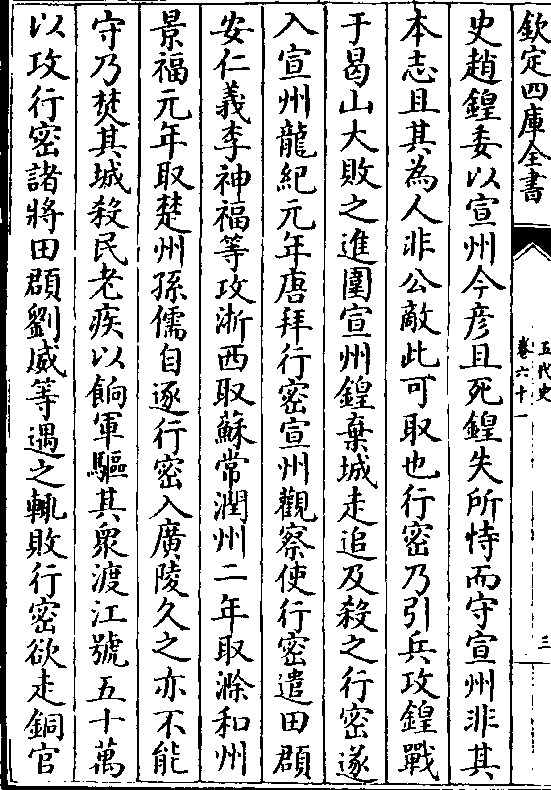 欽定四庫全書
五代史
卷六十一
三
史趙鍠委以宣州今彦且死鍠失所恃而守宣州非其
本志且其為人非公敵此可取也行密乃引兵攻鍠戰
于曷山大敗之進圍宣州鍠棄城走追及殺之行密遂
入宣州龍紀元年唐拜行密宣州觀察使行密遣田頵
安仁義李神福等攻浙西取蘇常潤州二年取滁和州
景福元年取楚州孫儒自逐行密入廣陵久之亦不能
守乃焚其城殺民老疾以餉軍驅其衆渡江號五十萬
以攻行密諸將田頵劉威等遇之輒敗行密欲走銅官